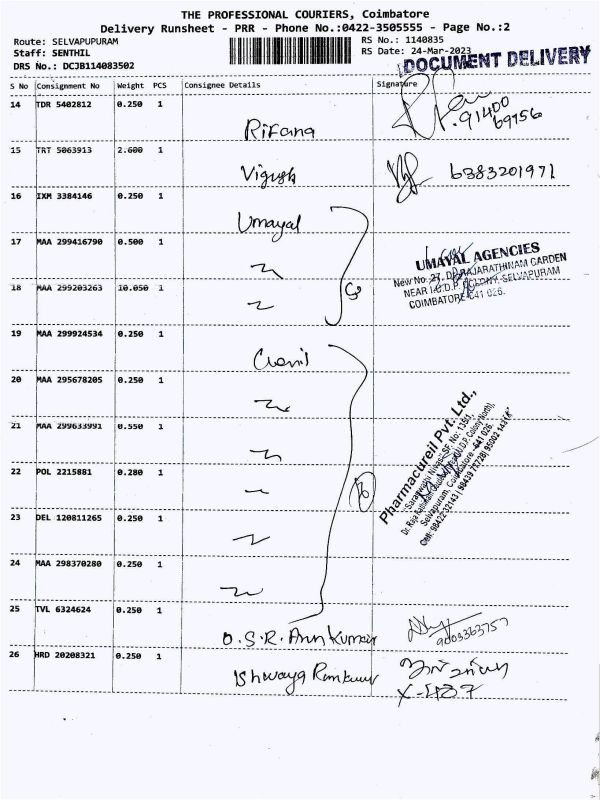 THE PROFESSIONAL COURIERS, Coimbatore
Delivery Runsheet - PRR - Phone No.:0422-3505555 - Page No.:2
Route: SELVAPUPURAM
RS No.: 1140835
Staff: SENTHIL
RS Date: 24-Mar-2023
DRS No.: DCJB114083502
DOCUMENT DELIVERY
S No Consignment No Weight PCS Consignee Details Signature
14 TDR 5402812 0.250 1 Rifana
91400
69956
15 TRT 5063913 2.600 1 Vignesh 6383201971
16 IXM 3384146 0.250 1 Umayal
17 MAA 299416790 0.500 1
UMAYAL AGENCIES
New No. 27, DP.RAJARATHINAM GARDEN
NEAR I.O.D.P. COLONY, SELVAPURAM
COIMBATORE 641 026.
18 MAA 299203263 10.050 1
19 MAA 299924534 0.250 1
20 MAA 295678205 0.250 1
21 MAA 299633991 0.550 1
Pharmacureil Pvt. Ltd.,
Selvapuram, Coimbatore - 641 026.
22 POL 2215881 0.280 1
23 DEL 120811265 0.250 1
24 MAA 298370280 0.250 1
25 TVL 6324624 0.250 1 O.S.R. Arun Kumar
9003363757
26 HRD 20208321 0.250 1